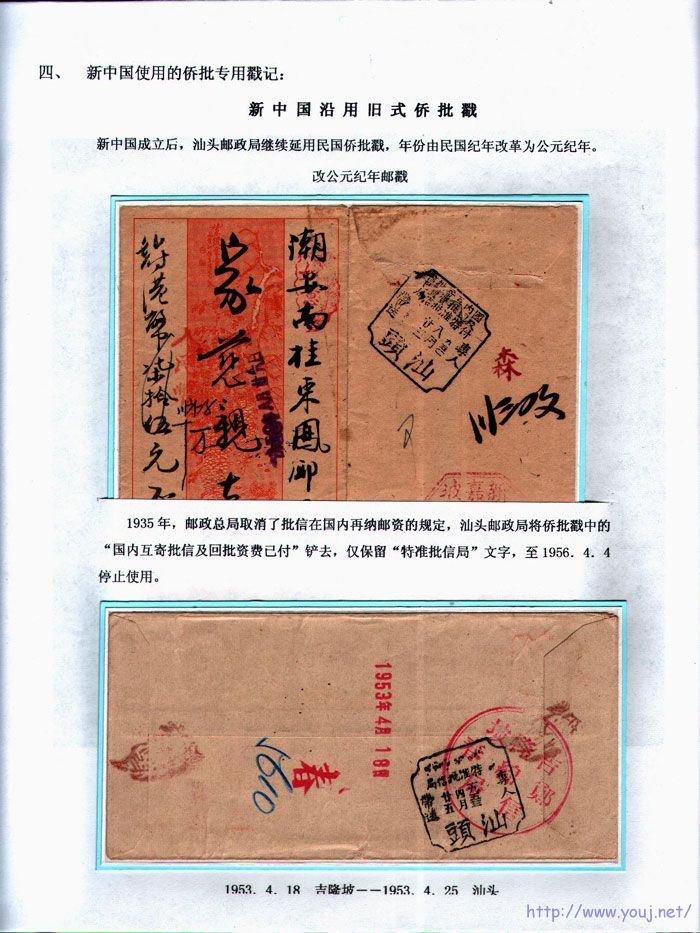 四、 新中国使用的侨批专用戳记：
新中国沿用旧式侨批戳
新中国成立后，汕头邮政局继续延用民国侨批戳，年份由民国纪年改革为公元纪年。
改公元纪年邮戳
潮安南桂東鳳鄉
家慈親
港幣柒拾伍元
專人
帶送
汕頭
森
新嘉坡
1935 年，邮政总局取消了批信在国内再纳邮资的规定，汕头邮政局将侨批戳中的
“国内互寄批信及回批资费已付”铲去，仅保留“特准批信局”文字，至 1956．4．4
停止使用。
1953年4月18日
春
1610
特准批信局
專人
帶送
廿五
汕頭
1953．4．18 吉隆坡——1953．4．25 汕头
http://www.youj.net/